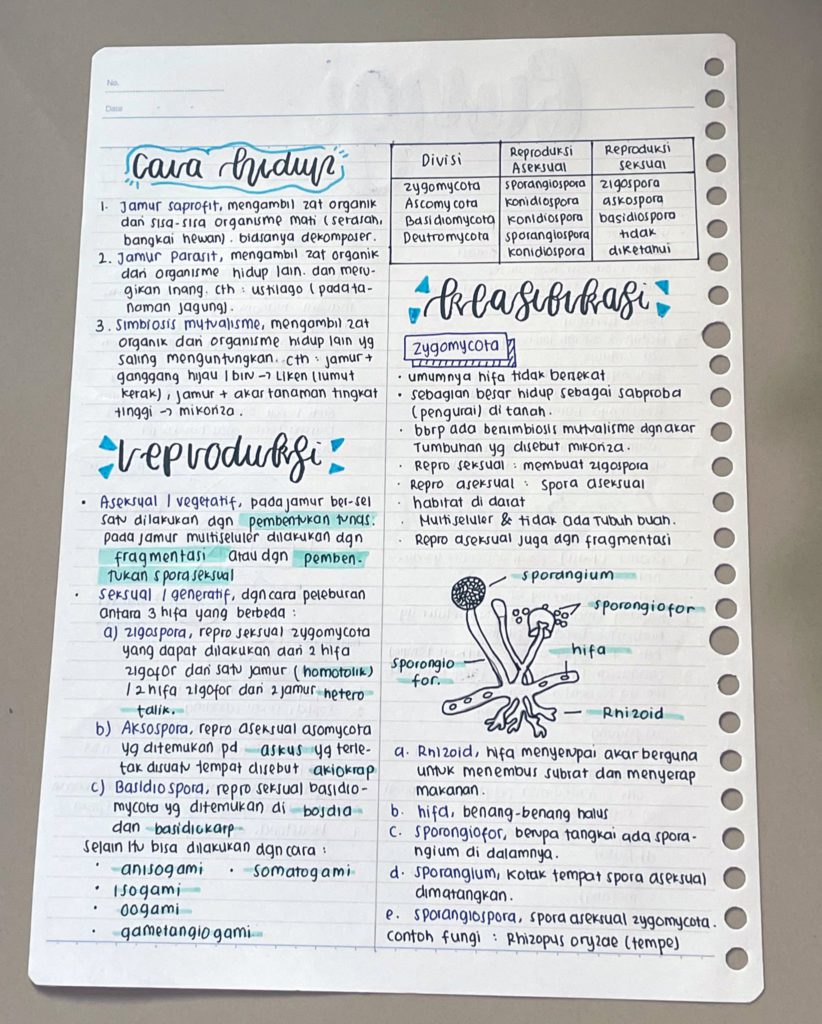 No.
Date
Cara hidup
1. Jamur saprofit, mengambil zat organik
dari sisa-sisa organisme mati (serasah,
bangkai hewan). biasanya dekomposer.
2. Jamur Parasit, mengambil zat organik
dari organisme hidup lain. dan meru-
gikan inang. cth : ustilago (pada ta-
naman jagung).
3. Simbiosis mutualisme, mengambil zat
organik dari organisme hidup lain yg
saling menguntungkan. cth : jamur +
ganggang hijau / biru -> Liken (lumut
kerak), jamur + akar tanaman tingkat
tinggi -> mikoriza.
reproduksi
• Aseksual / vegetatif, pada jamur ber-sel
satu dilakukan dgn pembentukan tunas.
pada jamur multiseluler dilakukan dgn
fragmentasi atau dgn pemben-
tukan spora seksual
• seksual / generatif, dgn cara peleburan
antara 3 hifa yang berbeda :
a) zigospora, repro seksual zygomycota
yang dapat dilakukan dari 2 hifa
zigofor dari satu jamur (homotolik)
/ 2 hifa zigofor dari 2 jamur hetero
talik.
b) Aksospora, repro aseksual asomycota
yg ditemukan pd askus yg terle-
tak disuatu tempat disebut akiokrap
c) Basidiospora, repro seksual basidio-
mycota yg ditemukan di bosdia
dan basidiokarp
selain itu bisa dilakukan dgn cara :
• anisogami • somatogami
• isogami
• oogami
• gametangiogami
Divisi Reproduksi Aseksual Reproduksi seksual
zygomycota sporangiospora zigospora
Ascomycota konidiospora askospora
Basidiomycota konidiospora basidiospora
Deutromycota sporangiospora tidak
konidiospora diketahui
klasifikasi
zygomycota
• umumnya hifa tidak bersekat
• sebagian besar hidup sebagai sabproba
(pengurai) di tanah.
• bbrp ada bersimbiosis mutualisme dgn akar
Tumbuhan yg disebut mikoriza.
• Repro seksual : membuat zigospora
• Repro aseksual : spora aseksual
• habitat di darat
• Multiseluler & tidak ada Tubuh buah.
• Repro aseksual juga dgn fragmentasi
sporangium
sporongiofor
sporongio
for.
hifa
Rhizoid
a. Rhizoid, hifa menyerupai akar berguna
untuk menembus subrat dan menyerap
makanan.
b. hifa, benang-benang halus
c. sporongiofor, berupa tangkai ada spora-
ngium di dalamnya.
d. sporangium, kotak tempat spora aseksual
dimatangkan.
e. sporangiospora, spora aseksual zygomycota.
contoh fungi : Rhizopus oryzae (tempe)